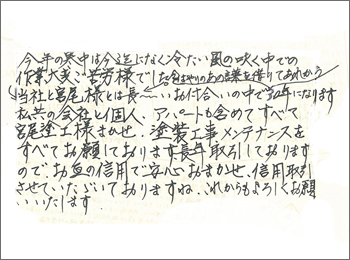 今年の寒中は今迄になく冷たい風の吹く中での
作業大変ご苦労様でした
当社と宮尾様とは長~いお付合いの中で30年になります
私共の会社と個人、アパートも含めてすべて
宮尾塗工様まかせ、塗装工事メンテナンスを
すべてお願しております長年取引しております
のでお互の信用で安心おまかせ、信用取引
させていただいておりますね、これからもよろしくお願
いいたします